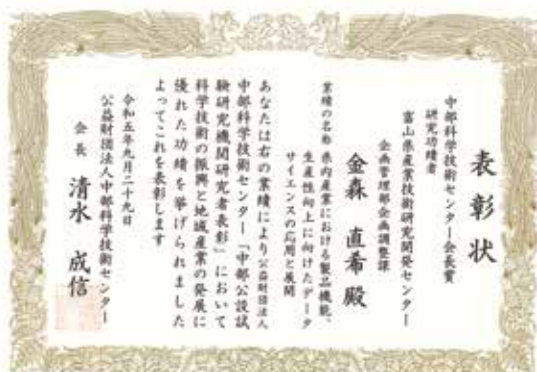 表彰状
中部科学技術センター会長賞
研究功績者
富山県産業技術研究開発センター
企画管理部企画調整課
金森 直希 殿
業績の名称 県内産業における製品機能、
生産性向上に向けたデータ
サイエンスの応用と展開
あなたは右の業績により公益財団法人
中部科学技術センター「中部公設試
験研究機関研究者表彰」において
科学技術の振興と地域産業の発展に
優れた功績を挙げられました
よってこれを表彰します
令和五年九月二十九日
公益財団法人中部科学技術センター
会長 清水 成信